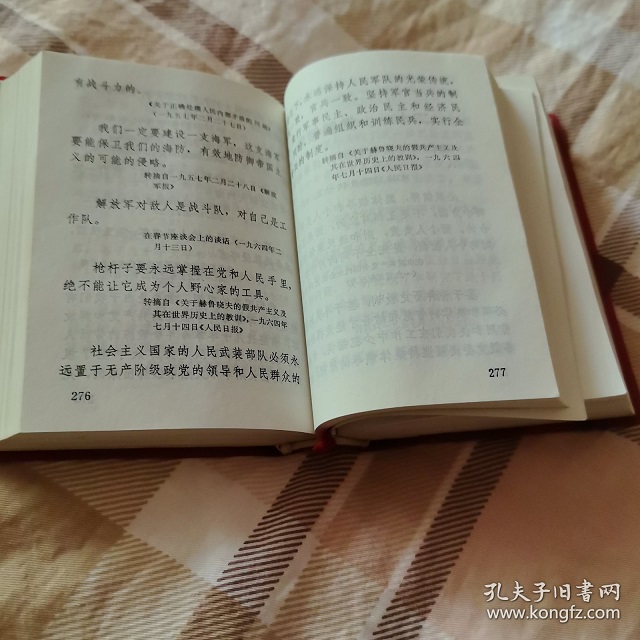 有战斗力的。
《关于正确处理人民内部矛盾的问题》
（一九五七年二月二十七日）
我们一定要建设一支海军，这支海军
要能保卫我们的海防，有效地防御帝国主
义的可能的侵略。
转摘自一九五七年二月二十八日《解放
军报》
解放军对敌人是战斗队，对自己是工
作队。
在春节座谈会上的谈话（一九六四年二
月十三日）
枪杆子要永远掌握在党和人民手里，
绝不能让它成为个人野心家的工具。
转摘自《关于赫鲁晓夫的假共产主义及
其在世界历史上的教训》，一九六四年
七月十四日《人民日报》
社会主义国家的人民武装部队必须永
远置于无产阶级政党的领导和人民群众的
276
永远保持人民军队的光荣传统，
官兵一致。坚持军官当兵的制
军事民主，政治民主和经济民
普遍组织和训练民兵，实行全
的制度。
转摘自《关于赫鲁晓夫的假共产主义及
其在世界历史上的教训》，一九六四
年七月十四日《人民日报》
277
孔夫子旧书网
www.kongfz.com